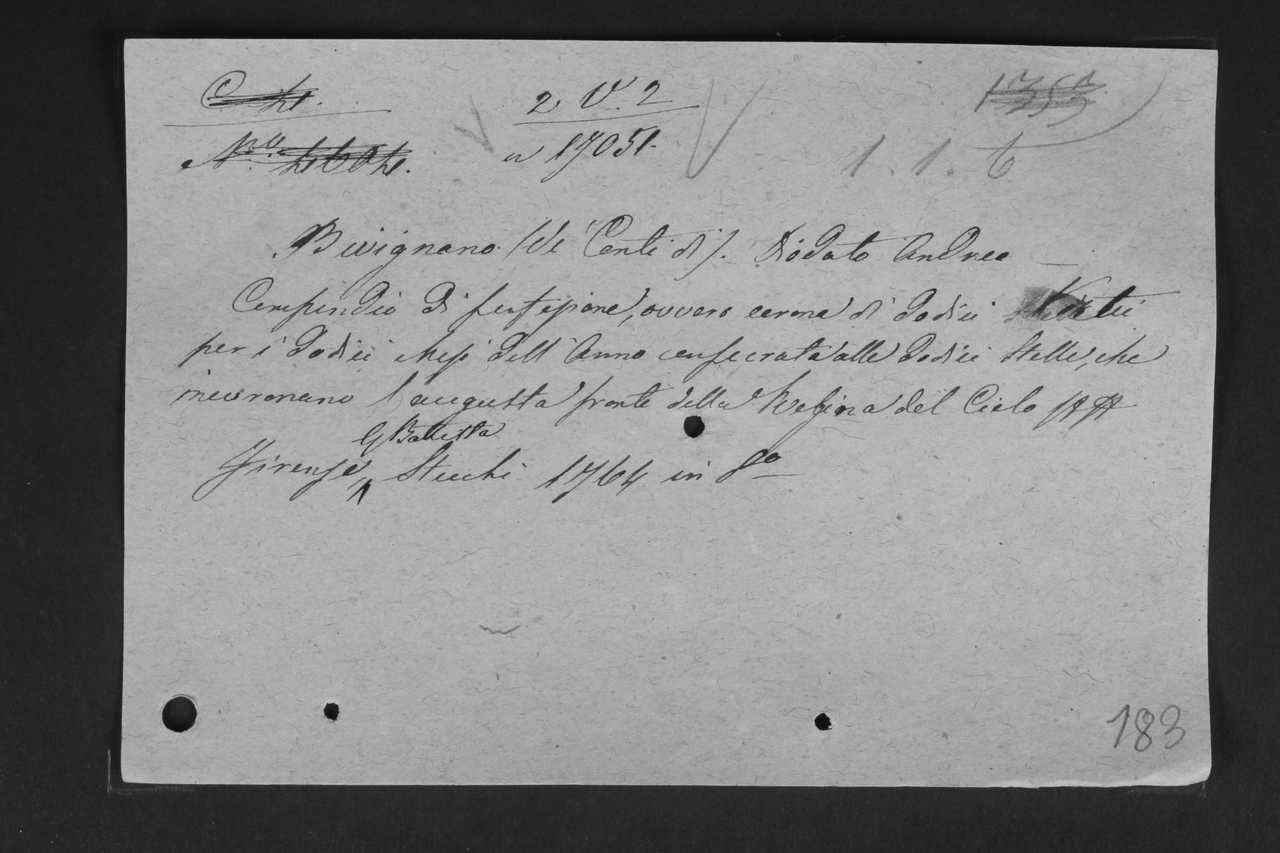 2. V. 2
n 17051.
1353
1. 1. 6
Bivignano (de' Conti di). Diodato Andrea
Compendio di perfezione, ovvero corona di dodici
per i dodici Mesi dell' Anno consecrata alle dodici Stelle, che
incoronano l'augusta fronte della Regina del Cielo
G Batista
Firenze, Stecchi 1764 in 8o
183